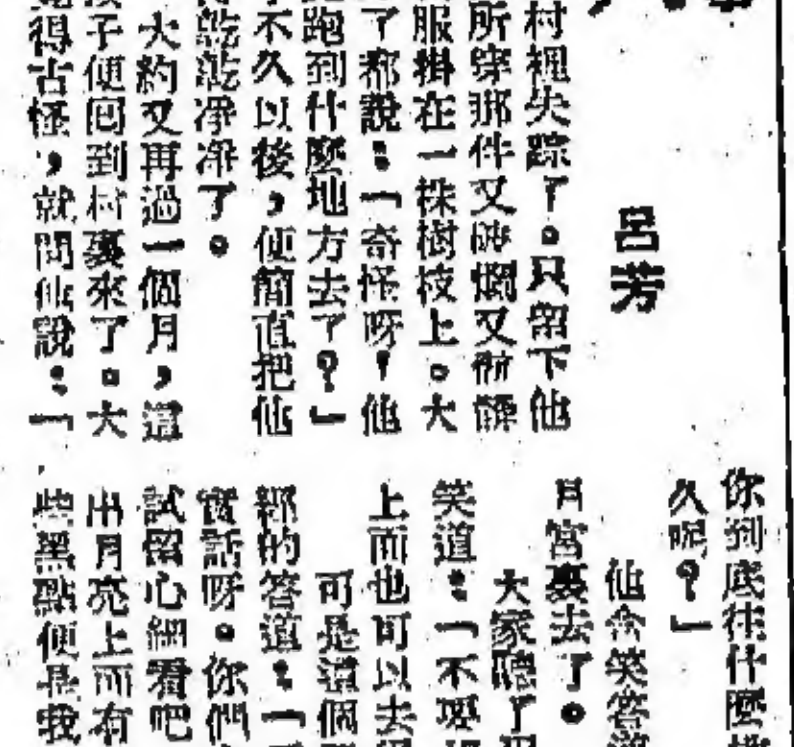 呂芳
村裡失踪了。只留下他
所穿那件又破爛又骯髒
服掛在一株樹枝上。大
了都說：「奇怪呀！他
跑到什麼地方去了？」
不久以後，便簡直把他
乾乾淨淨了。
大約又再過一個月，這
孩子便回到村裏來了。大
得古怪，就問他說：「
你到底往什麼
久呢？」
他含笑答道
月宮裏去了。
大家聽了
笑道：「不要
上面也可以去
可是這個
的答道：「
實話呀。你們
試留心細看吧
出月亮上面有
些黑點便是我